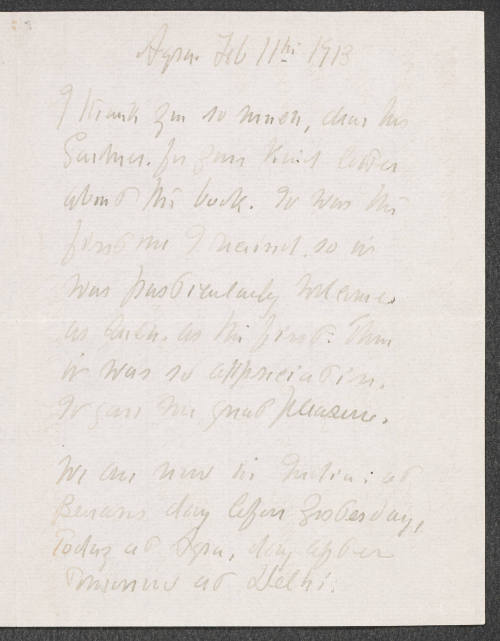 Agra. Feb 11th 1913
I thank you so much, dear Mrs
Gardner. for your kind letter
about the book. It was the
first one I received. so it
was particularly welcome.
as such. as the first. Then
it was so appreciative.
It gave me great pleasure.
We are now in India: at
Benares day before yesterday,
Today at Agra, day after
tomorrow at Delhi.